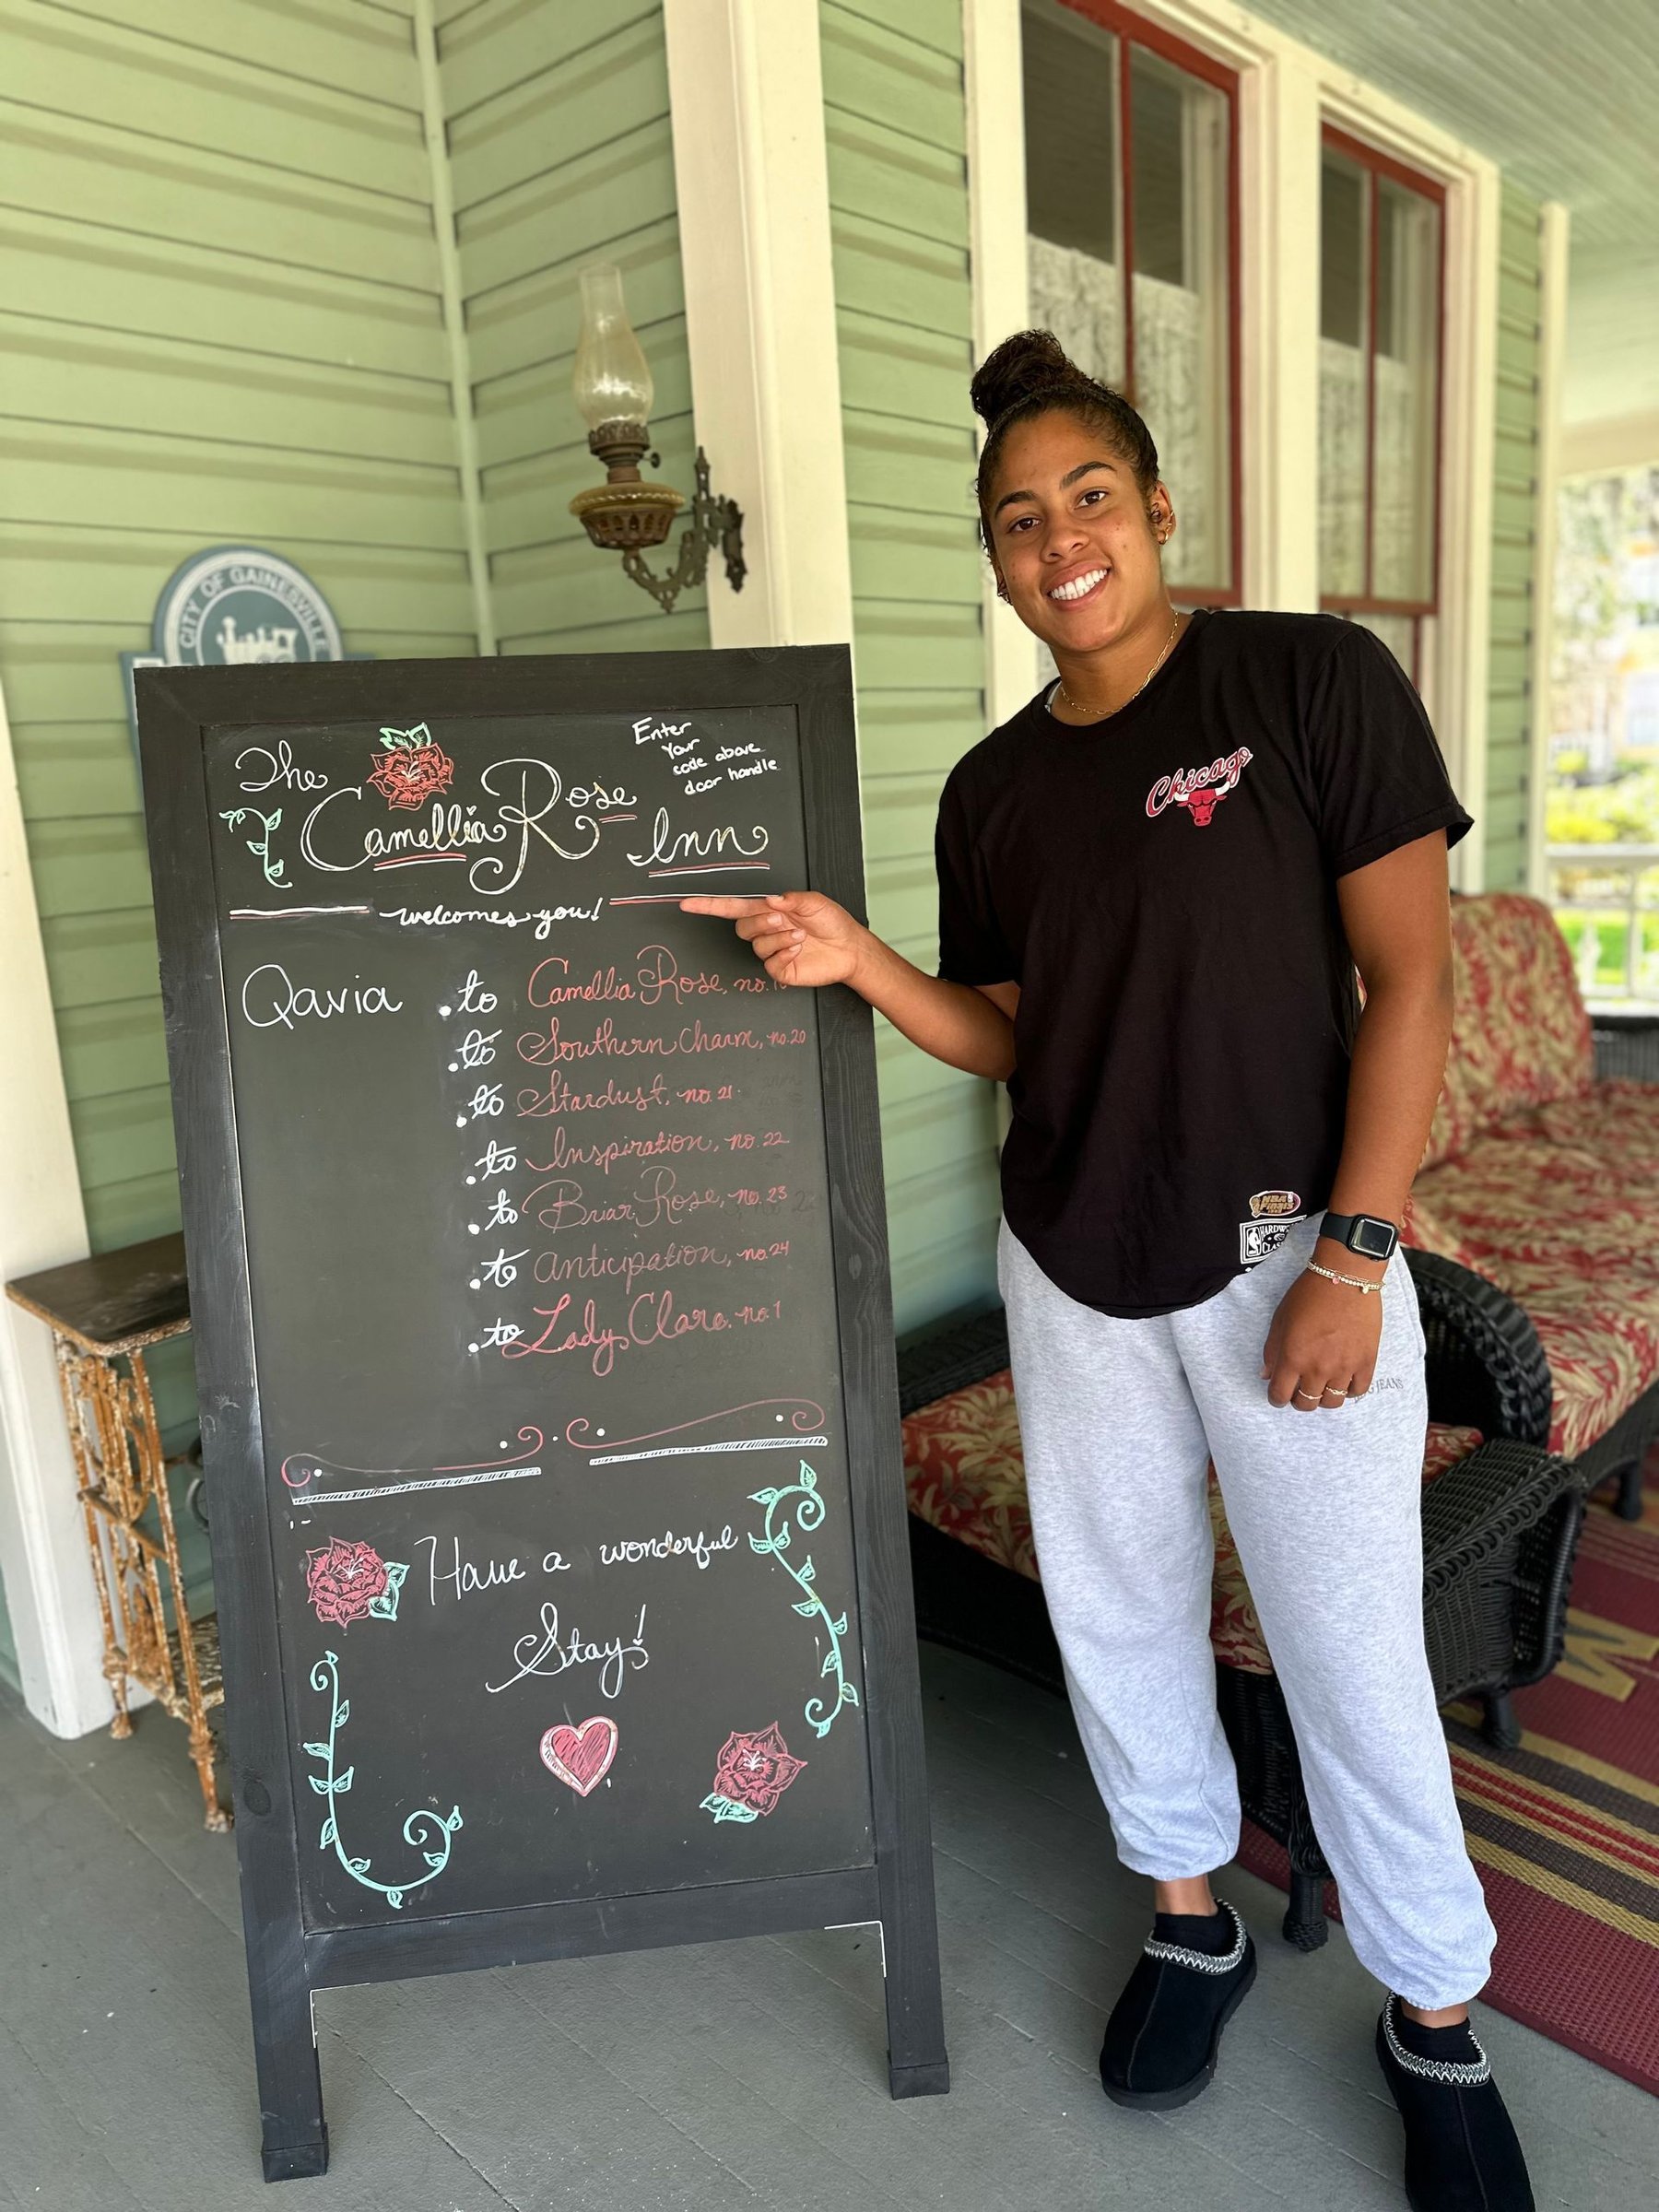 CITY OF GAINESVILLE
The
Camellia Rose Inn
Enter
Your
code above
door handle
welcomes you!
Qavia .to Camellia Rose, no.
.to Southern Charm, no.20
.to Stardust, no.21.
.to Inspiration, no.22
.to Briar Rose, no.23
.to Anticipation, no.24
.to Lady Clare, no.1
Have a wonderful
Stay!
Chicago
NBA
Finals
JEANS